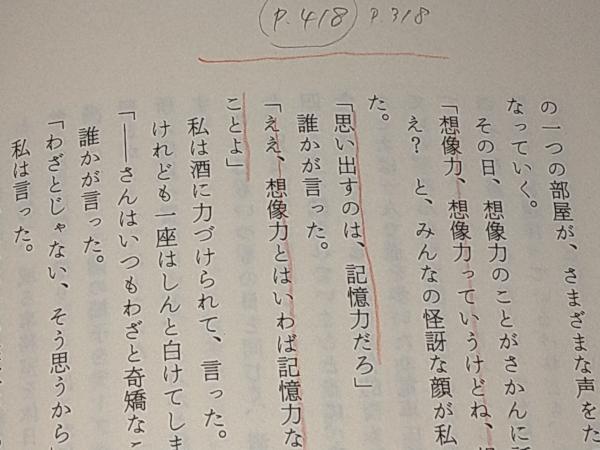 p.418 p.318
の一つの部屋が、さまざまな声をた
なっていく。
その日、想像力のことがさかんに話
「想像力、想像力っていうけどね、想
え? と、みんなの怪訝な顔が私
た。
「思い出すのは、記憶力だろ」
誰かが言った。
「ええ、想像力とはいわば記憶力な
ことよ」
私は酒に力づけられて、言った。
けれども一座はしんと白けてしま
「――さんはいつもわざと奇矯なこ
誰かが言った。
「わざとじゃない、そう思うから
私は言った。